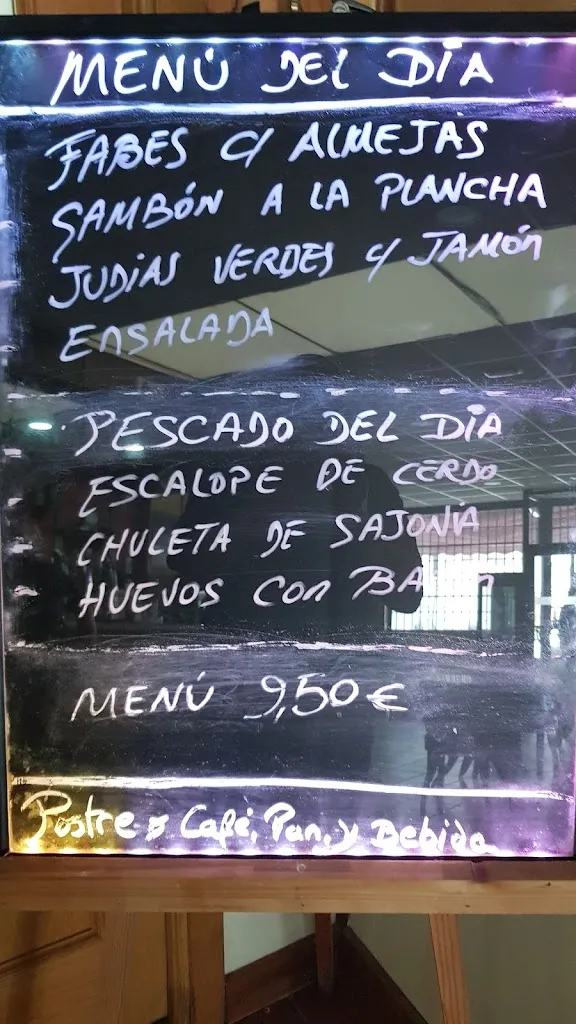 MENÚ DEL DÍA
FABES C/ ALMEJAS
GAMBÓN A LA PLANCHA
JUDÍAS VERDES C/ JAMÓN
ENSALADA
PESCADO DEL DÍA
ESCALOPE DE CERDO
CHULETA DE SAJONIA
HUEVOS CON
MENÚ 9,50€
Postre o Café, Pan, y Bebida